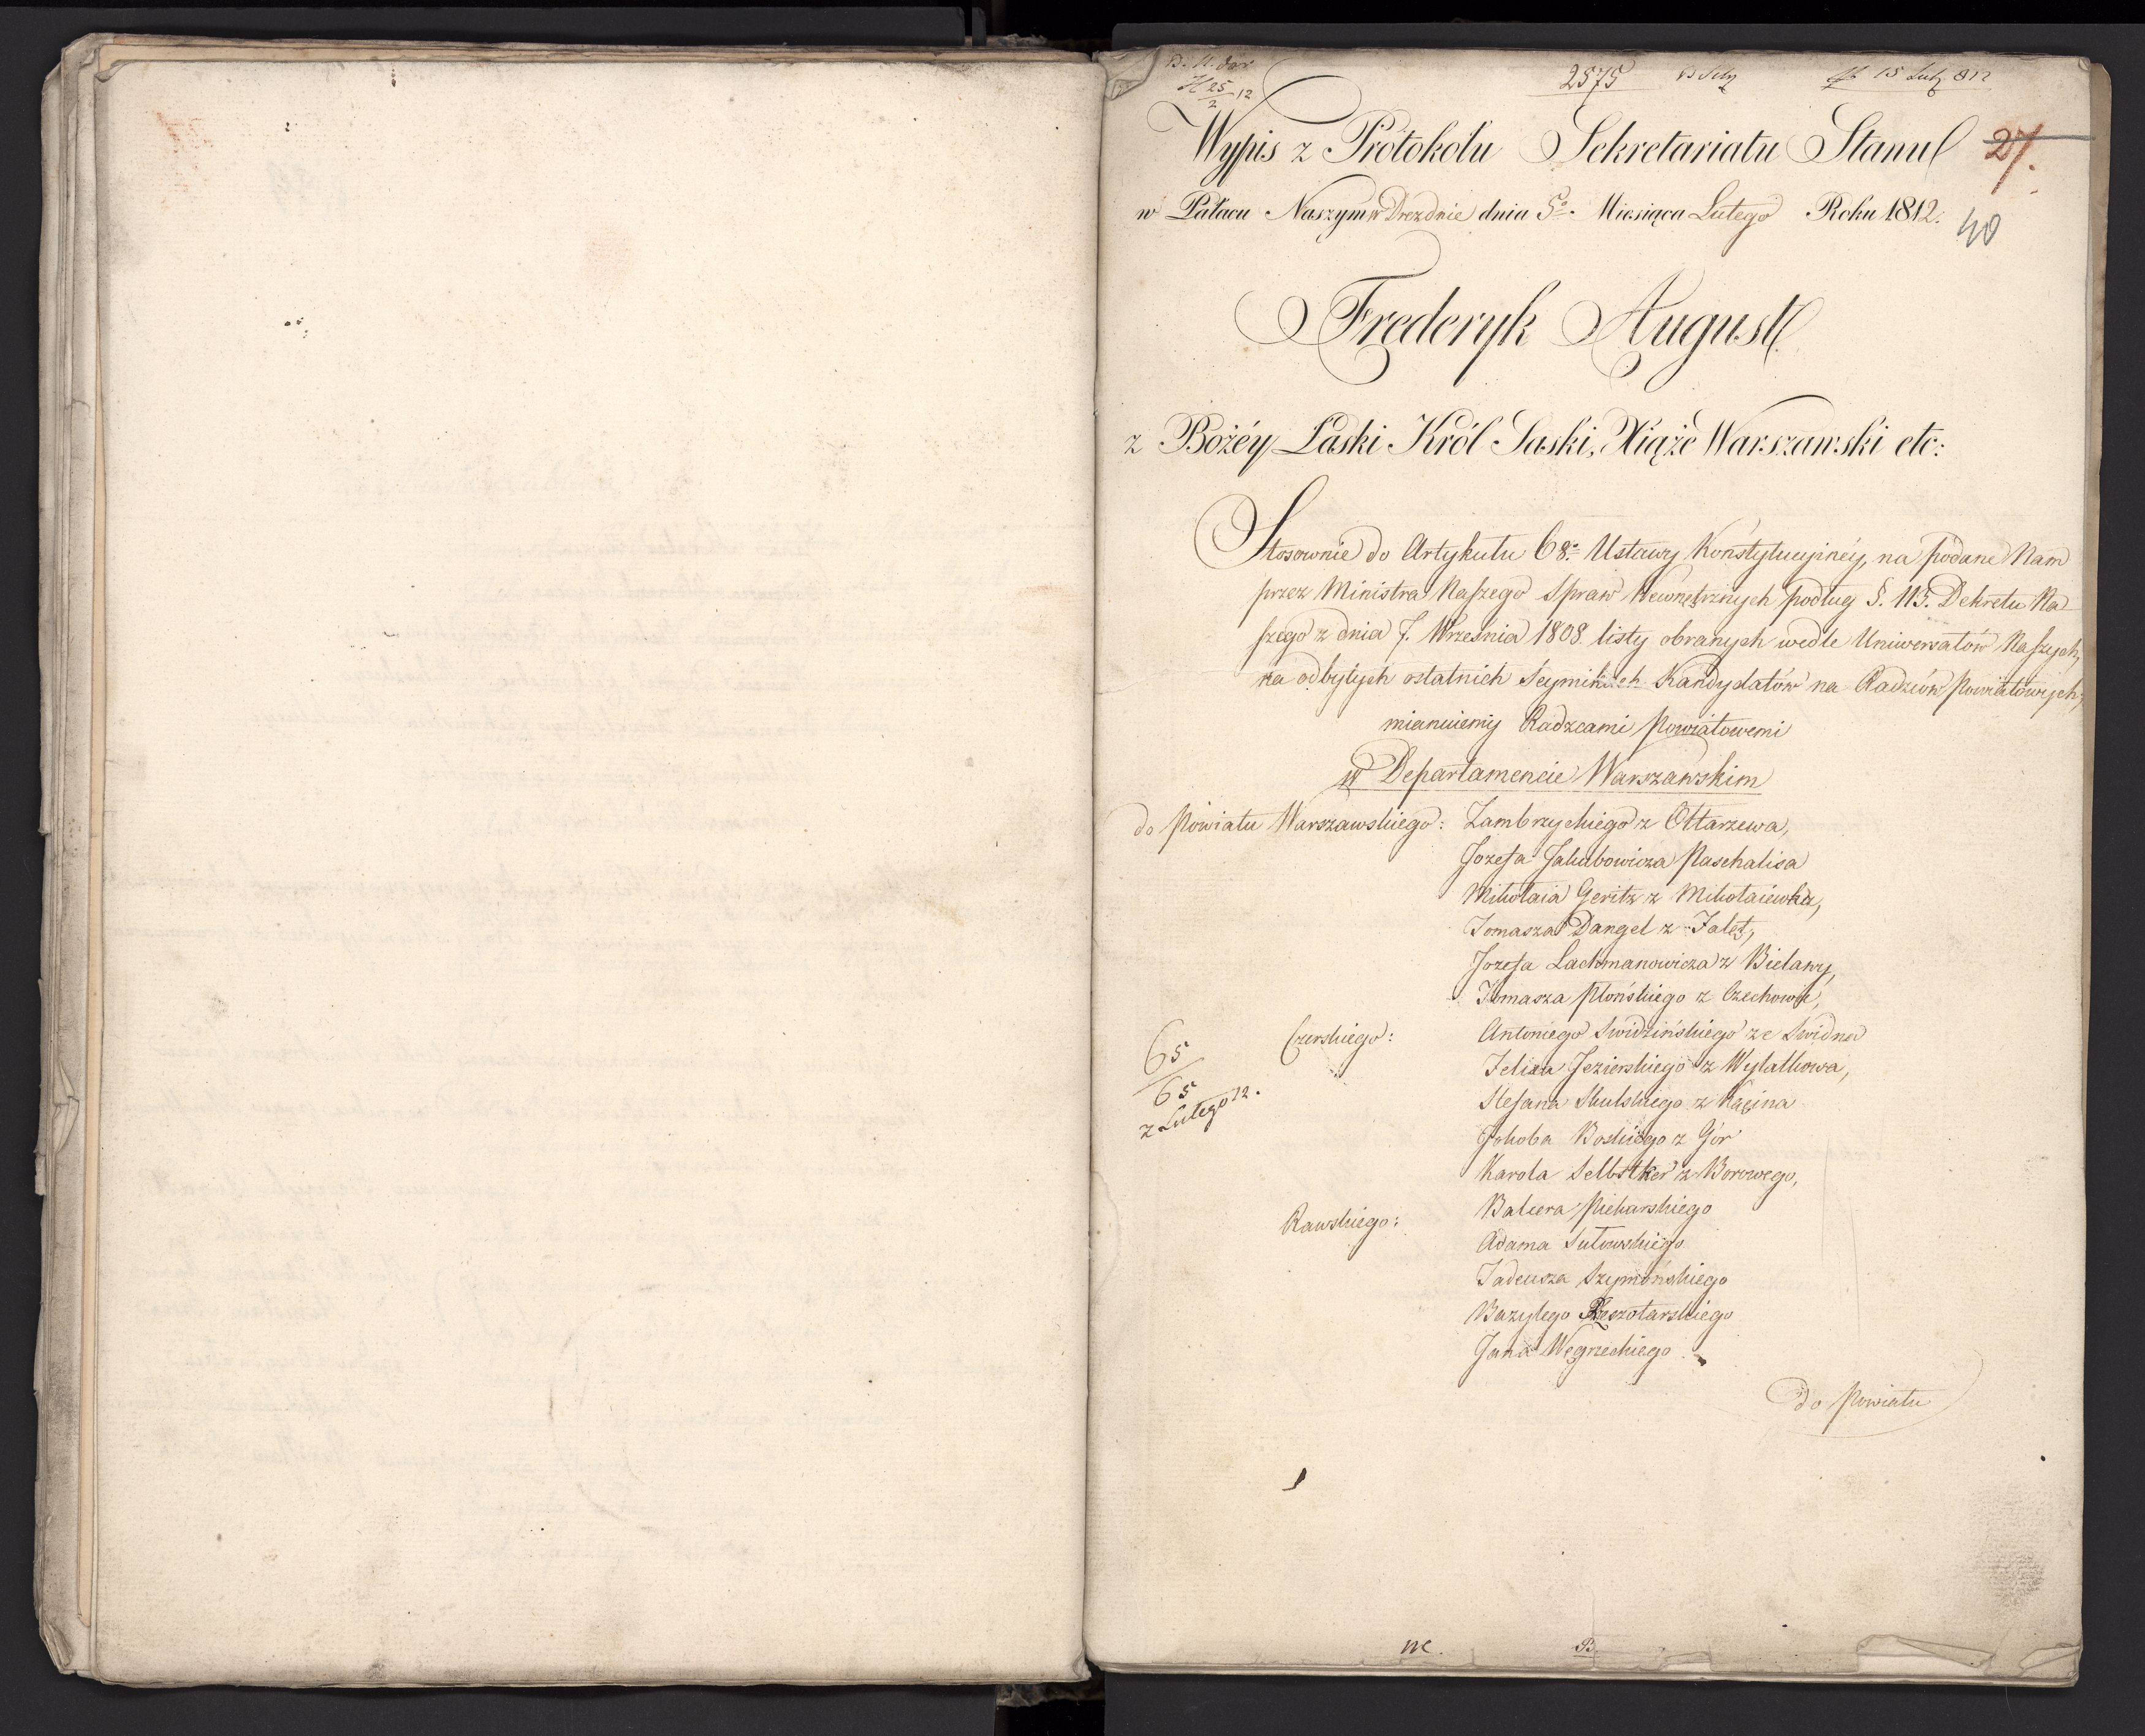 2575
15 Lut 812
25/2 12
Wypis z Protokołu Sekretariatu Stanu
27.
w Pałacu Naszym w Dreznie dnia 5o. Miesiąca Lutego Roku 1812.
40
Frederyk August
z Bożéy Łaski Król Saski, Xiąże Warszawski etc:
Stosownie do Artykułu 68o Ustawy Konstytucyinéy, na podane Nam
przez Ministra Naszego Spraw Wewnętrznych podług §. 115. Dekretu Na-
szego z dnia 7. Września 1808 listy obranych wedle Uniwersałów Naszych,
na odbytych ostatnich Seymikach Kandydatów na Radzców Powiatowych,
mianuiemy Radzcami Powiatowemi
w Departamencie Warszawskim
do Powiatu Warszawskiego: Zambrzyckiego z Ołtarzewa,
Jozefa Jakubowicza Paschalisa
Mikołaia Geritz z Mikołaiewka,
Tomasza Dangel z Falęt,
Jozefa Lachmanowicza z Bielawy,
Tomasza Płońskiego z Czechowic,
Czerskiego: Antoniego Swidzińskiego ze Swidna
Felixa Jezierskiego z Wylatkowa,
Stefana Skulskiego z Kącina
Jakoba Boskiego z Gór
Karola Selbstker z Borowego,
Rawskiego: Balcera Piekarskiego
Adama Sutkowskiego
Tadeusza Szymańskiego
Bazylego Rzeszotarskiego
Jana Węgrzeckiego
65
65
z Lutego 12.
do Powiatu